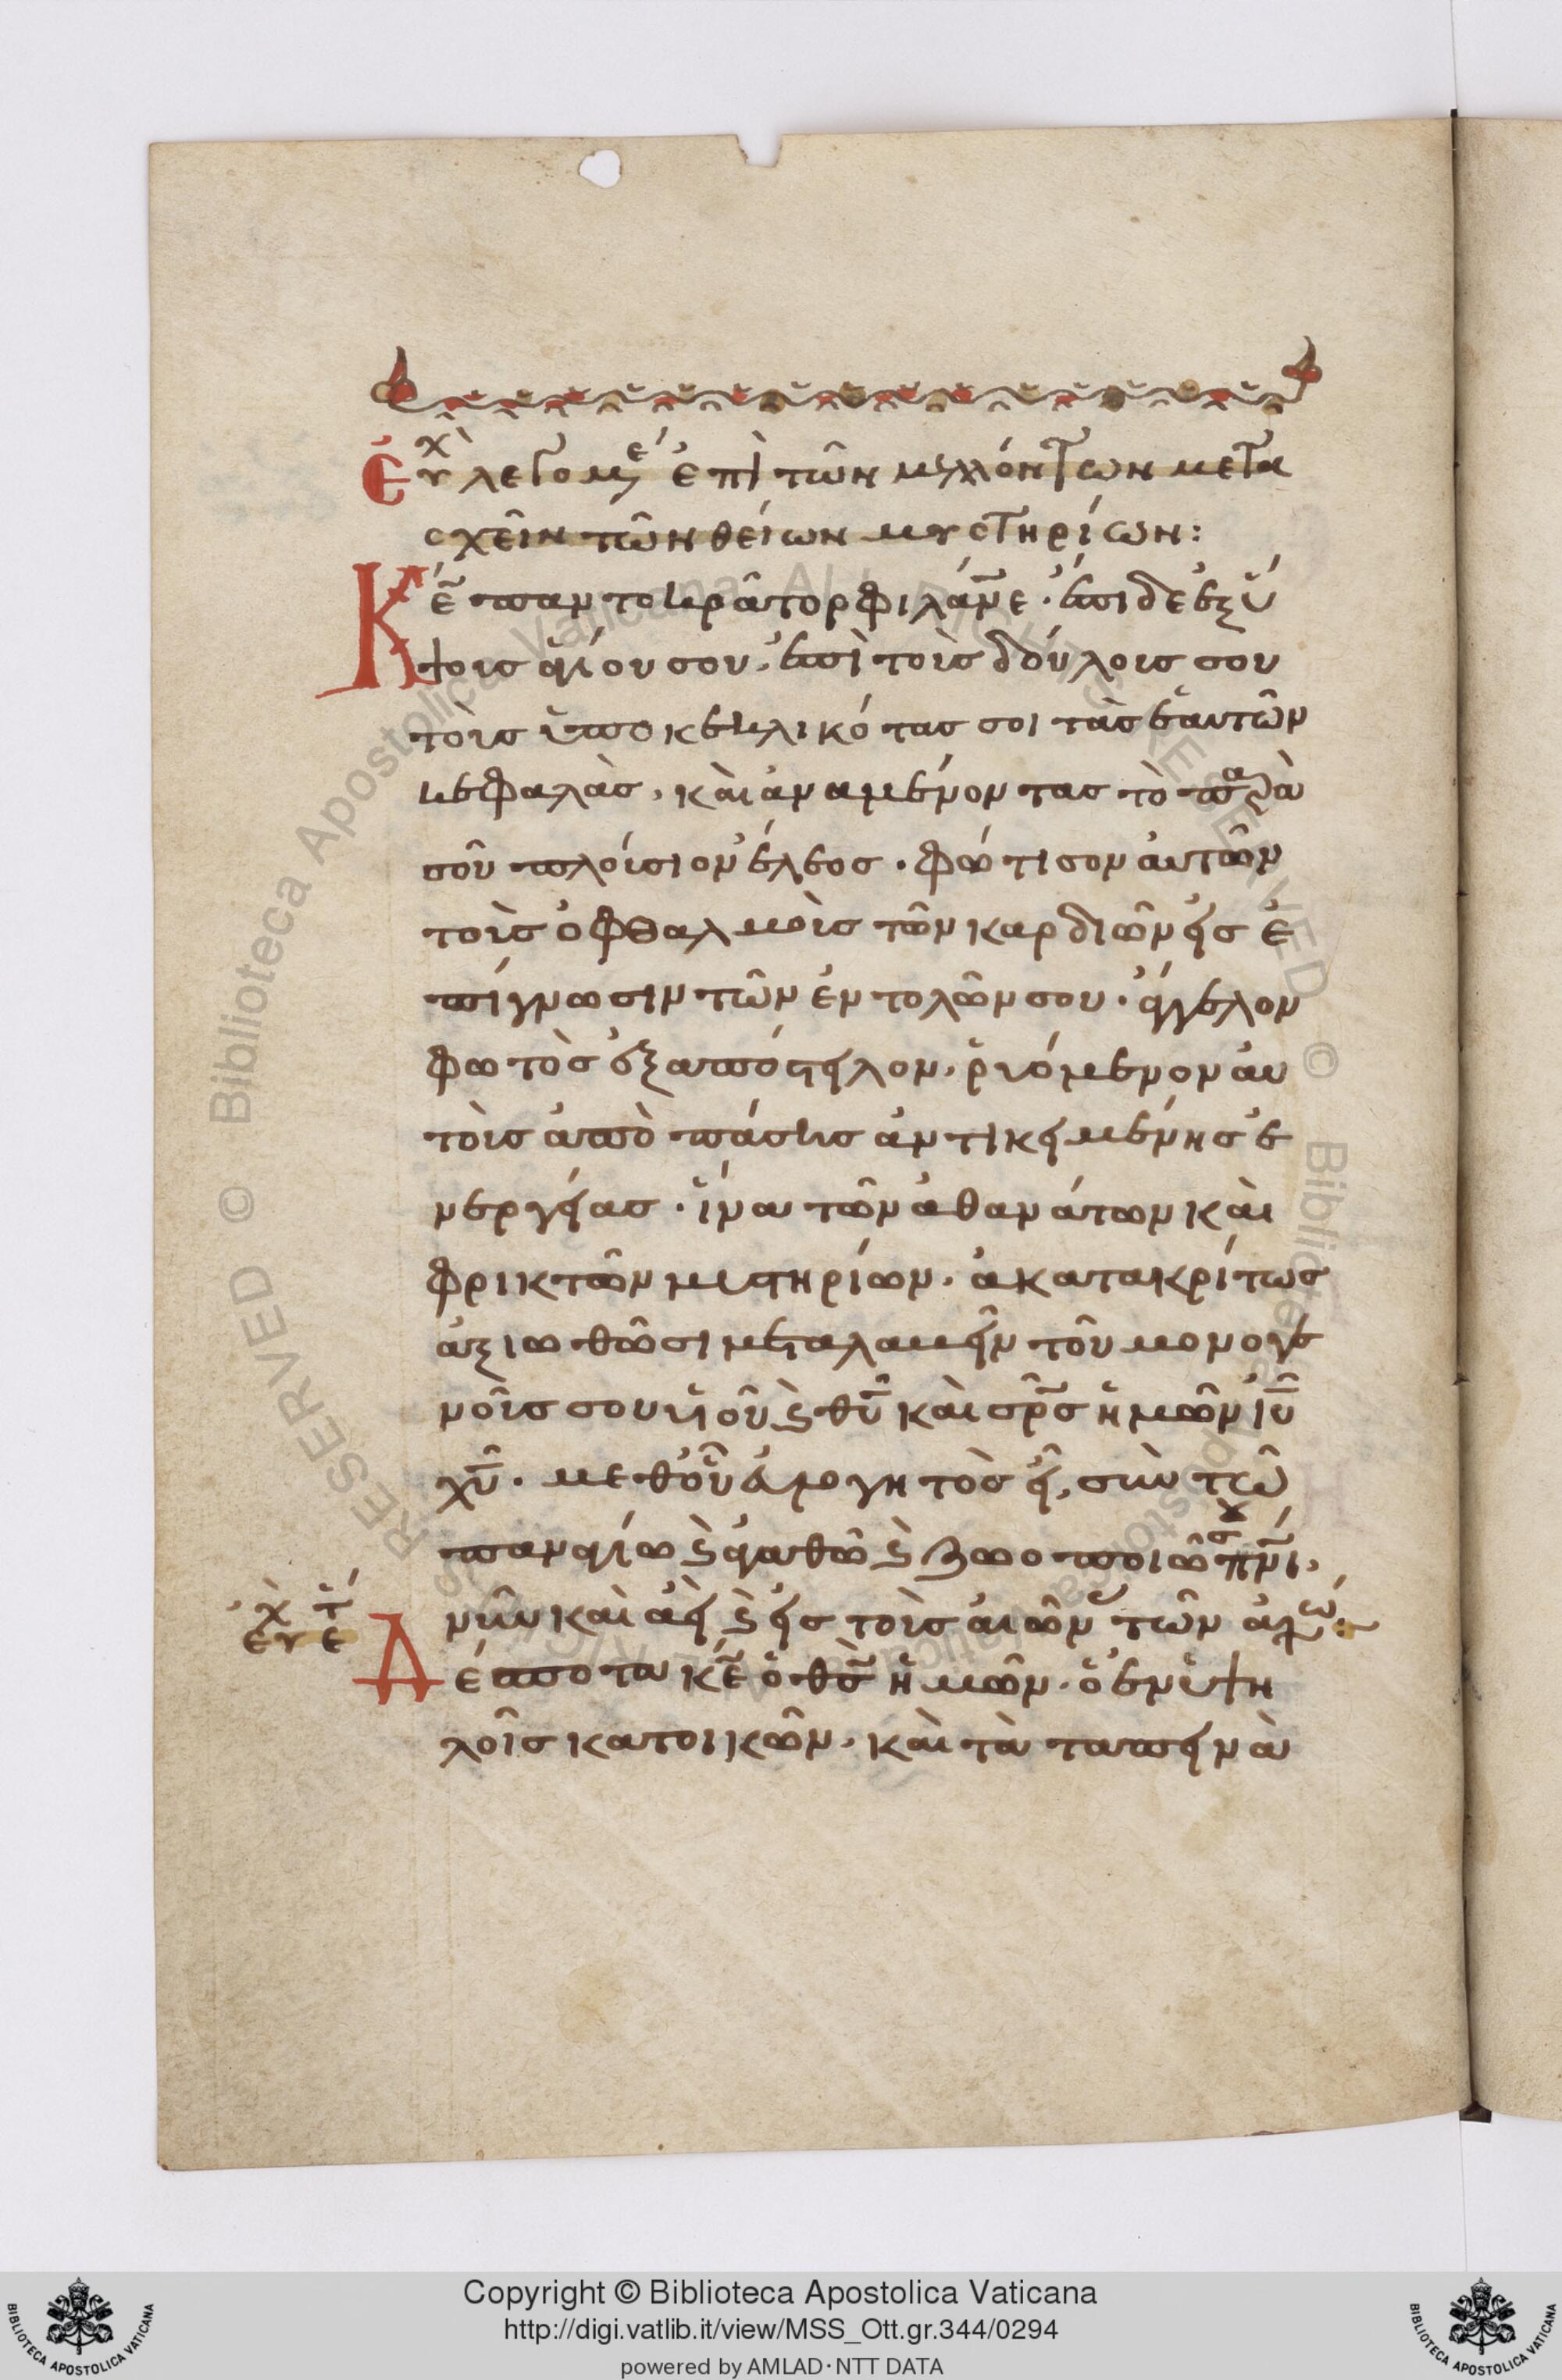 Εὐχὴ λεγομέ ἐπὶ τῶν μελλόντων μετα
σχεῖν τῶν θείων μυστηρίων:
Κέ παντοκράτορ φιλάνε· ἔπιδε ἐξ ὕ
ψους ἁγίου σου, ἐπὶ τοὺς δούλους σου
τοὺς ὑποκεκλικότας σοι τὰς ἑαυτῶν
κεφαλὰς, καὶ ἀναμένοντας τὸ παρὰ
σοῦ πλούσιον ἔλεος· φώτισον αὐτῶν
τοὺς ὀφθαλμοὺς τῶν καρδιῶν εἰς ἐ
πίγνωσιν τῶν ἐντολῶν σου· ἄγγελον
φωτὸς ἐξαπόστειλον, ῥυόμενον αὐ
τοὺς ἀπὸ πάσης ἀντικειμένης ἐ
νεργείας· ἵνα τῶν ἀθανάτων καὶ
φρικτῶν μυστηρίων, ἀκατακρίτως
ἀξιωθῶσι μεταλαμεῖν τοῦ μονογε
νοῦς σου υἱοῦ καὶ θῦ καὶ σρς ἡμῶν ἰῦ
χῦ· μεθ οὗ εὐλογητὸς εἶ, σὺν τῶ
παναγίω καὶ ἀγαθῶ καὶ ζωοποιῶ σου πνι,
νῦν καὶ ἀεὶ καὶ εἰς τοὺς αἰῶν τῶν αἰώ:
εὐχὴ ἑτέ
Δέσποτα κέ ὁ θς ἡμῶν· ὁ ἐν ὑψη
λοῖς κατοικῶν, καὶ τὰ ταπεινὰ
Copyright © Biblioteca Apostolica Vaticana
http://digi.vatlib.it/view/MSS_Ott.gr.344/0294
powered by AMLAD·NTT DATA
BIBLIOTECA APOSTOLICA VATICANA
BIBLIOTECA APOSTOLICA VATICANA